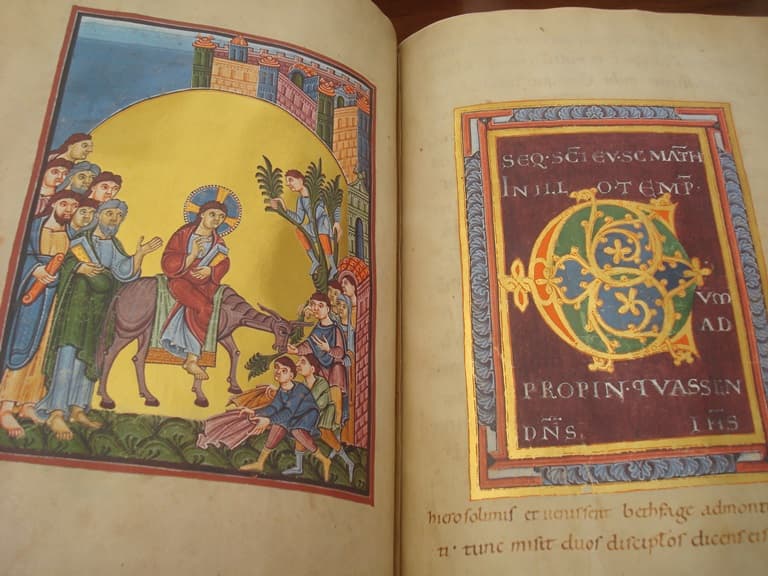 SEQ·SC̄I EV·SC MATH̄
IN ILL O·TEMP̄·
C
VM
AD
PROPIN·QVASSEN
DN̄S· IH̄S
hierosolimis et uenissent bethfage admonte
ti· tunc misit duos discipl̄os dicens eis